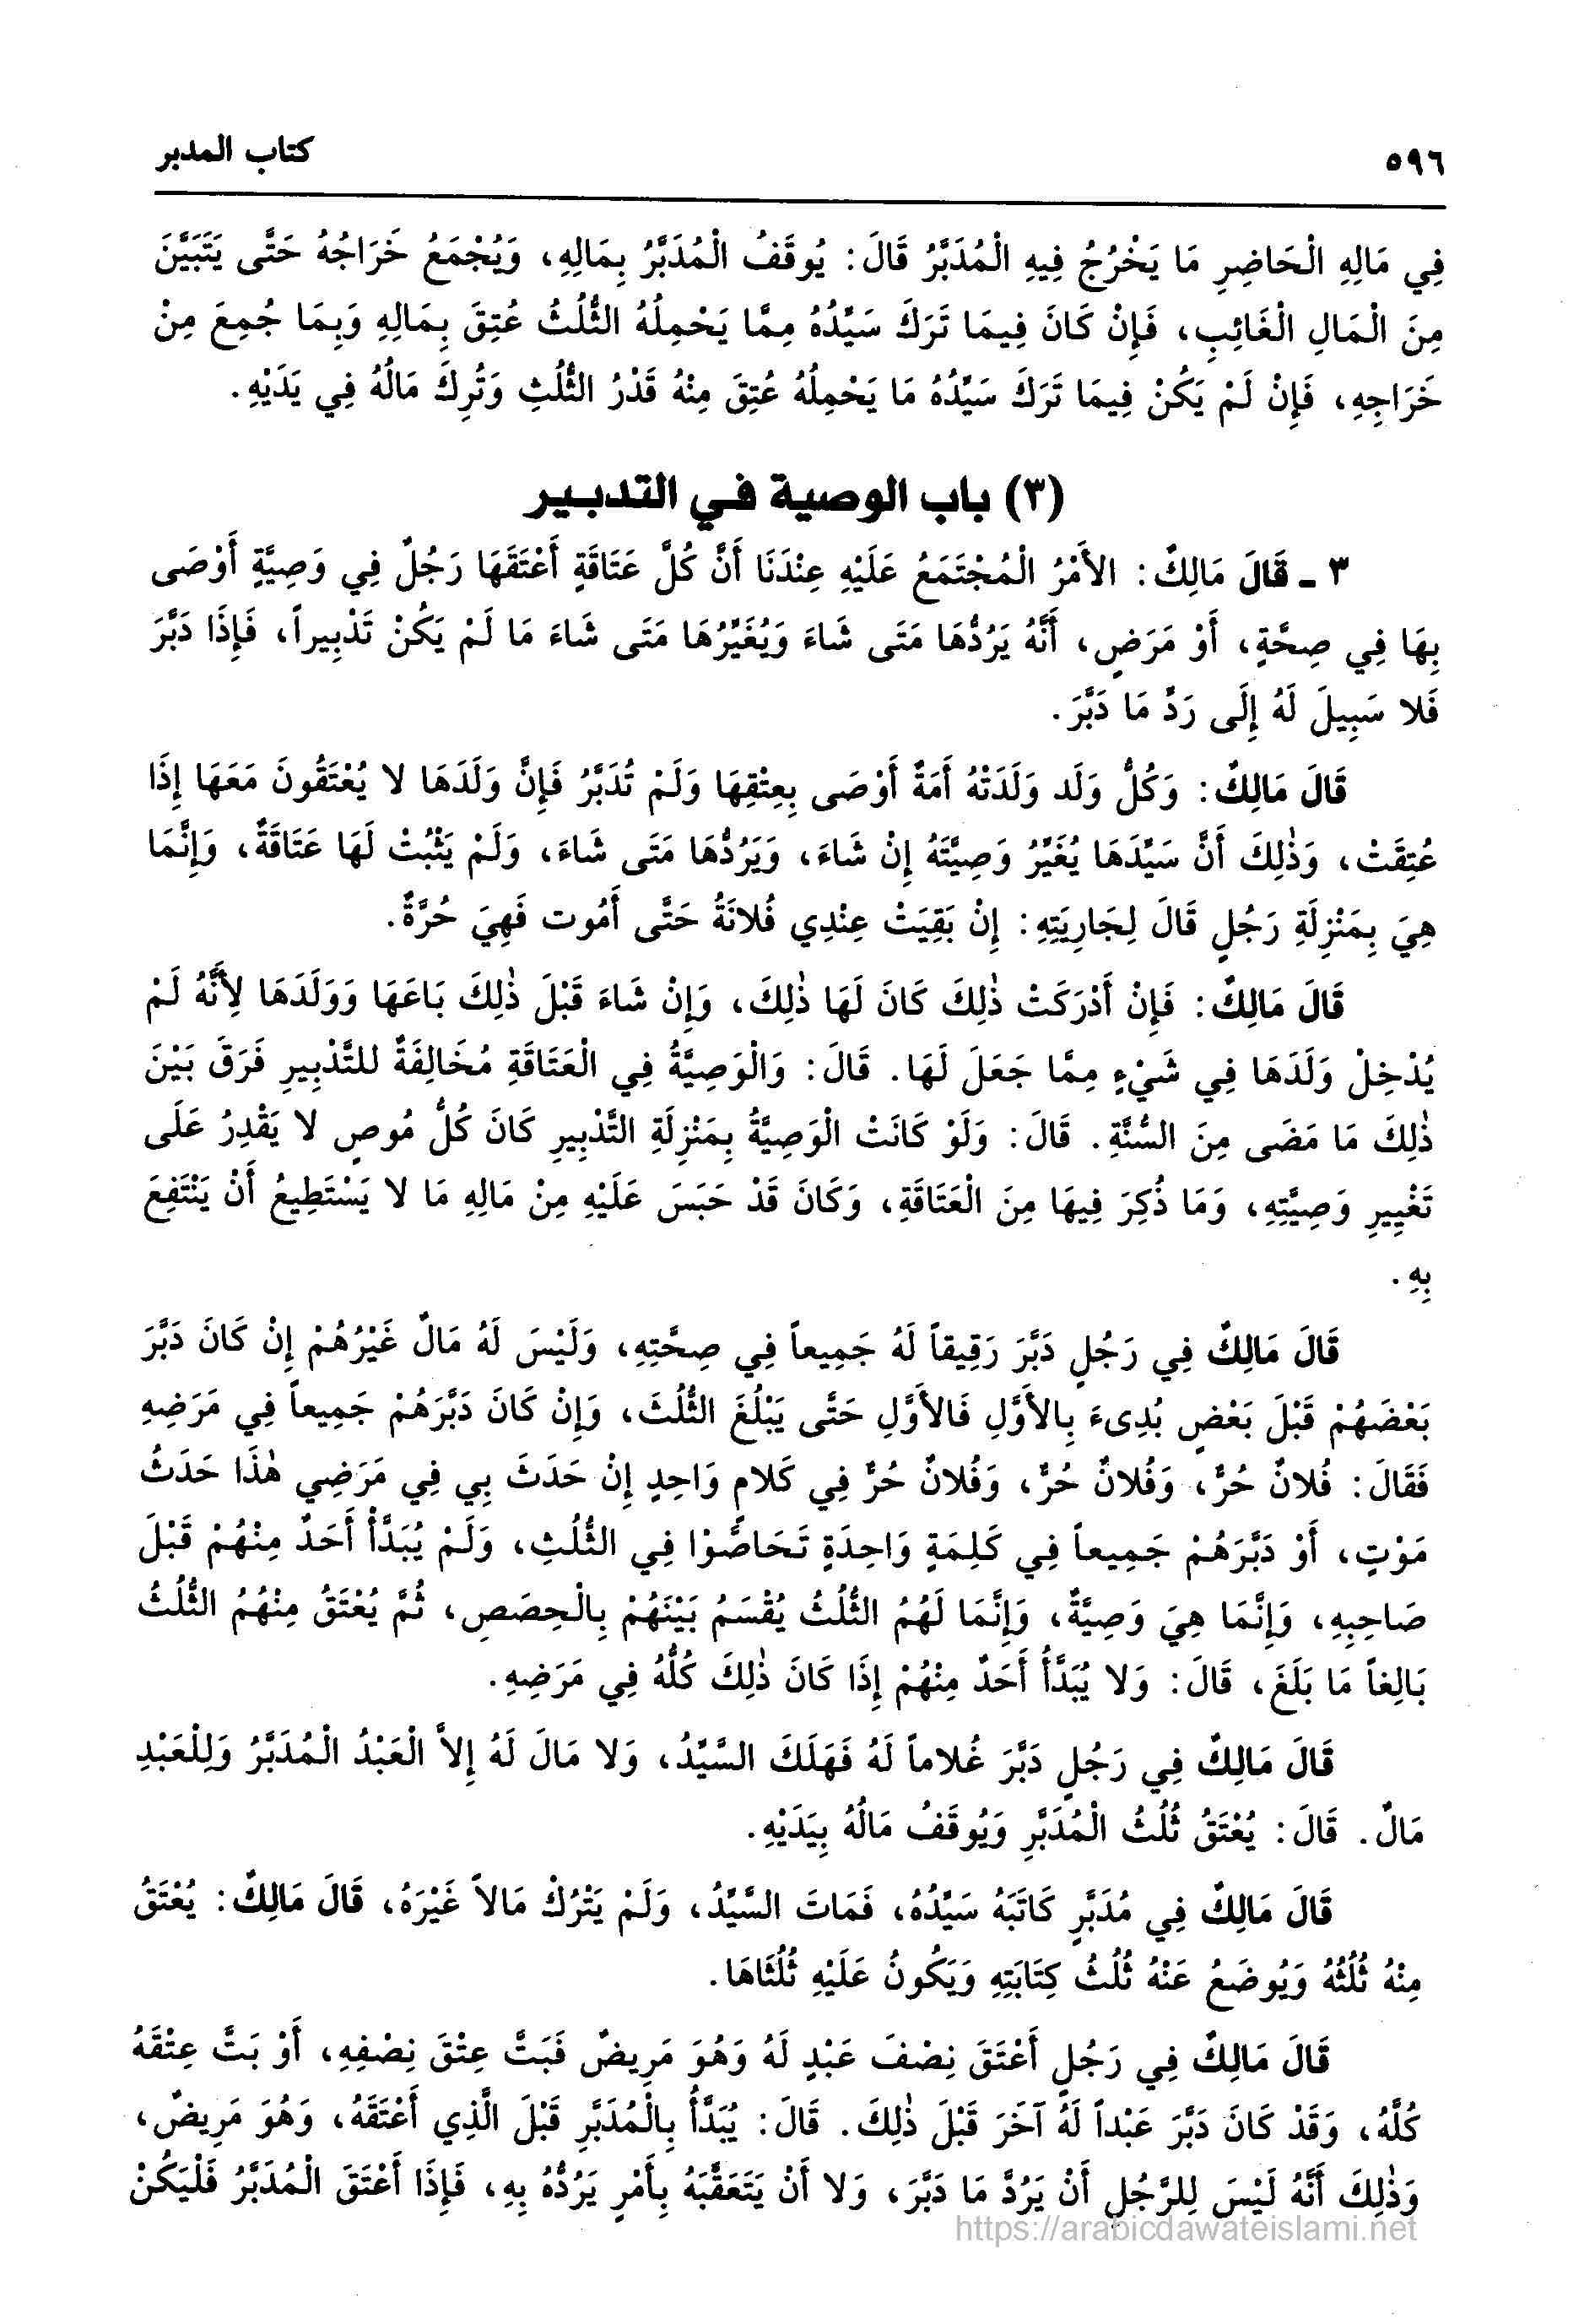 ٥٩٦ كتاب المدبر
فِي مَالِهِ الْحَاضِرِ مَا يَخْرُجُ فِيهِ الْمُدَبَّرُ قَالَ: يُوقَفُ الْمُدَبَّرُ بِمَالِهِ، وَيُجْمَعُ خَرَاجُهُ حَتَّى يَتَبَيَّنَ
مِنَ الْمَالِ الْغَائِبِ، فَإِنْ كَانَ فِيمَا تَرَكَ سَيِّدُهُ مِمَّا يَحْمِلُهُ الثُّلُثُ عُتِقَ بِمَالِهِ وَبِمَا جُمِعَ مِنْ
خَرَاجِهِ، فَإِنْ لَمْ يَكُنْ فِيمَا تَرَكَ سَيِّدُهُ مَا يَحْمِلُهُ عُتِقَ مِنْهُ قَدْرُ الثُّلُثِ وَتُرِكَ مَالُهُ فِي يَدَيْهِ.
(٣) باب الوصية في التدبير
٣ ـ قَالَ مَالِكٌ: الأَمْرُ الْمُجْتَمَعُ عَلَيْهِ عِنْدَنَا أَنَّ كُلَّ عَتَاقَةٍ أَعْتَقَهَا رَجُلٌ فِي وَصِيَّةٍ أَوْصَى
بِهَا فِي صِحَّةٍ، أَوْ مَرَضٍ، أَنَّهُ يَرُدُّهَا مَتَى شَاءَ وَيُغَيِّرُهَا مَتَى شَاءَ مَا لَمْ يَكُنْ تَدْبِيراً، فَإِذَا دَبَّرَ
فَلا سَبِيلَ لَهُ إِلَى رَدِّ مَا دَبَّرَ.
قَالَ مَالِكٌ: وَكُلُّ وَلَد وَلَدَتْهُ أَمَةٌ أَوْصَى بِعِتْقِهَا وَلَمْ تُدَبَّرُ فَإِنَّ وَلَدَهَا لا يُعْتَقُونَ مَعَهَا إِذَا
عُتِقَتْ، وَذٰلِكَ أَنَّ سَيِّدَهَا يُغَيِّرُ وَصِيَّتَهُ إِنْ شَاءَ، وَيَرُدُّهَا مَتَى شَاءَ، وَلَمْ يَثْبُتْ لَهَا عَتَاقَةٌ، وَإِنَّمَا
هِيَ بِمَنْزِلَةِ رَجُلٍ قَالَ لِجَارِيَتِهِ: إِنْ بَقِيَتْ عِنْدِي فُلانَةُ حَتَّى أَمُوت فَهِيَ حُرَّةٌ.
قَالَ مَالِكٌ: فَإِنْ أَدْرَكَتْ ذٰلِكَ كَانَ لَهَا ذٰلِكَ، وَإِنْ شَاءَ قَبْلَ ذٰلِكَ بَاعَهَا وَوَلَدَهَا لِأَنَّهُ لَمْ
يُدْخِلْ وَلَدَهَا فِي شَيْءٍ مِمَّا جَعَلَ لَهَا. قَالَ: وَالْوَصِيَّةُ فِي الْعَتَاقَةِ مُخَالِفَةٌ للتَّدْبِيرِ فَرَقَ بَيْنَ
ذٰلِكَ مَا مَضَى مِنَ السُّنَّةِ. قَالَ: وَلَوْ كَانَتْ الْوَصِيَّةُ بِمَنْزِلَةِ التَّدْبِيرِ كَانَ كُلُّ مُوصٍ لا يَقْدِرُ عَلَى
تَغْيِيرِ وَصِيَّتِهِ، وَمَا ذُكِرَ فِيهَا مِنَ الْعَتَاقَةِ، وَكَانَ قَدْ حَبَسَ عَلَيْهِ مِنْ مَالِهِ مَا لا يَسْتَطِيعُ أَنْ يَنْتَفِعَ
بِهِ.
قَالَ مَالِكٌ فِي رَجُلٍ دَبَّرَ رَقِيقاً لَهُ جَمِيعاً فِي صِحَّتِهِ، وَلَيْسَ لَهُ مَالٌ غَيْرُهُمْ إِنْ كَانَ دَبَّرَ
بَعْضَهُمْ قَبْلَ بَعْضٍ بُدِىءَ بِالأَوَّلِ فَالأَوَّلِ حَتَّى يَبْلُغَ الثُّلُثَ، وَإِنْ كَانَ دَبَّرَهُمْ جَمِيعاً فِي مَرَضِهِ
فَقَالَ: فُلانٌ حُرٌّ، وَفُلانٌ حُرٌّ، وَفُلانٌ حُرٌّ فِي كَلامٍ وَاحِدٍ إِنْ حَدَثَ بِي فِي مَرَضِي هٰذَا حَدَثُ
مَوْتٍ، أَوْ دَبَّرَهُمْ جَمِيعاً فِي كَلِمَةٍ وَاحِدَةٍ تَحَاصَّوْا فِي الثُّلُثِ، وَلَمْ يُبَدَّأْ أَحَدٌ مِنْهُمْ قَبْلَ
صَاحِبِهِ، وَإِنَّمَا هِيَ وَصِيَّةٌ، وَإِنَّمَا لَهُمُ الثُّلُثُ يُقْسَمُ بَيْنَهُمْ بِالْحِصَصِ، ثُمَّ يُعْتَقُ مِنْهُمُ الثُّلُثُ
بَالِغاً مَا بَلَغَ، قَالَ: وَلا يُبَدَّأُ أَحَدٌ مِنْهُمْ إِذَا كَانَ ذٰلِكَ كُلُّهُ فِي مَرَضِهِ.
قَالَ مَالِكٌ فِي رَجُلٍ دَبَّرَ غُلاماً لَهُ فَهَلَكَ السَّيِّدُ، وَلا مَالَ لَهُ إِلاَّ الْعَبْدُ الْمُدَبَّرُ وَلِلْعَبْدِ
مَالٌ. قَالَ: يُعْتَقُ ثُلُثُ الْمُدَبَّرِ وَيُوقَفُ مَالُهُ بِيَدَيْهِ.
قَالَ مَالِكٌ فِي مُدَبَّرٍ كَاتَبَهُ سَيِّدُهُ، فَمَاتَ السَّيِّدُ، وَلَمْ يَتْرُكْ مَالاً غَيْرَهُ، قَالَ مَالِكٌ: يُعْتَقُ
مِنْهُ ثُلُثُهُ وَيُوضَعُ عَنْهُ ثُلُثُ كِتَابَتِهِ وَيَكُونُ عَلَيْهِ ثُلُثَاهَا.
قَالَ مَالِكٌ فِي رَجُلٍ أَعْتَقَ نِصْفَ عَبْدٍ لَهُ وَهُوَ مَرِيضٌ فَبَتَّ عِتْقَ نِصْفِهِ، أَوْ بَتَّ عِتْقَهُ
كُلَّهُ، وَقَدْ كَانَ دَبَّرَ عَبْداً لَهُ آخَرَ قَبْلَ ذٰلِكَ. قَالَ: يُبَدَّأُ بِالْمُدَبَّرِ قَبْلَ الَّذِي أَعْتَقَهُ، وَهُوَ مَرِيضٌ،
وَذٰلِكَ أَنَّهُ لَيْسَ لِلرَّجُلِ أَنْ يَرُدَّ مَا دَبَّرَ، وَلا أَنْ يَتَعَقَّبَهُ بِأَمْرٍ يَرُدُّهُ بِهِ، فَإِذَا أَعْتَقَ الْمُدَبَّرُ فَلْيَكُنْ
https://arabicdawateislami.net